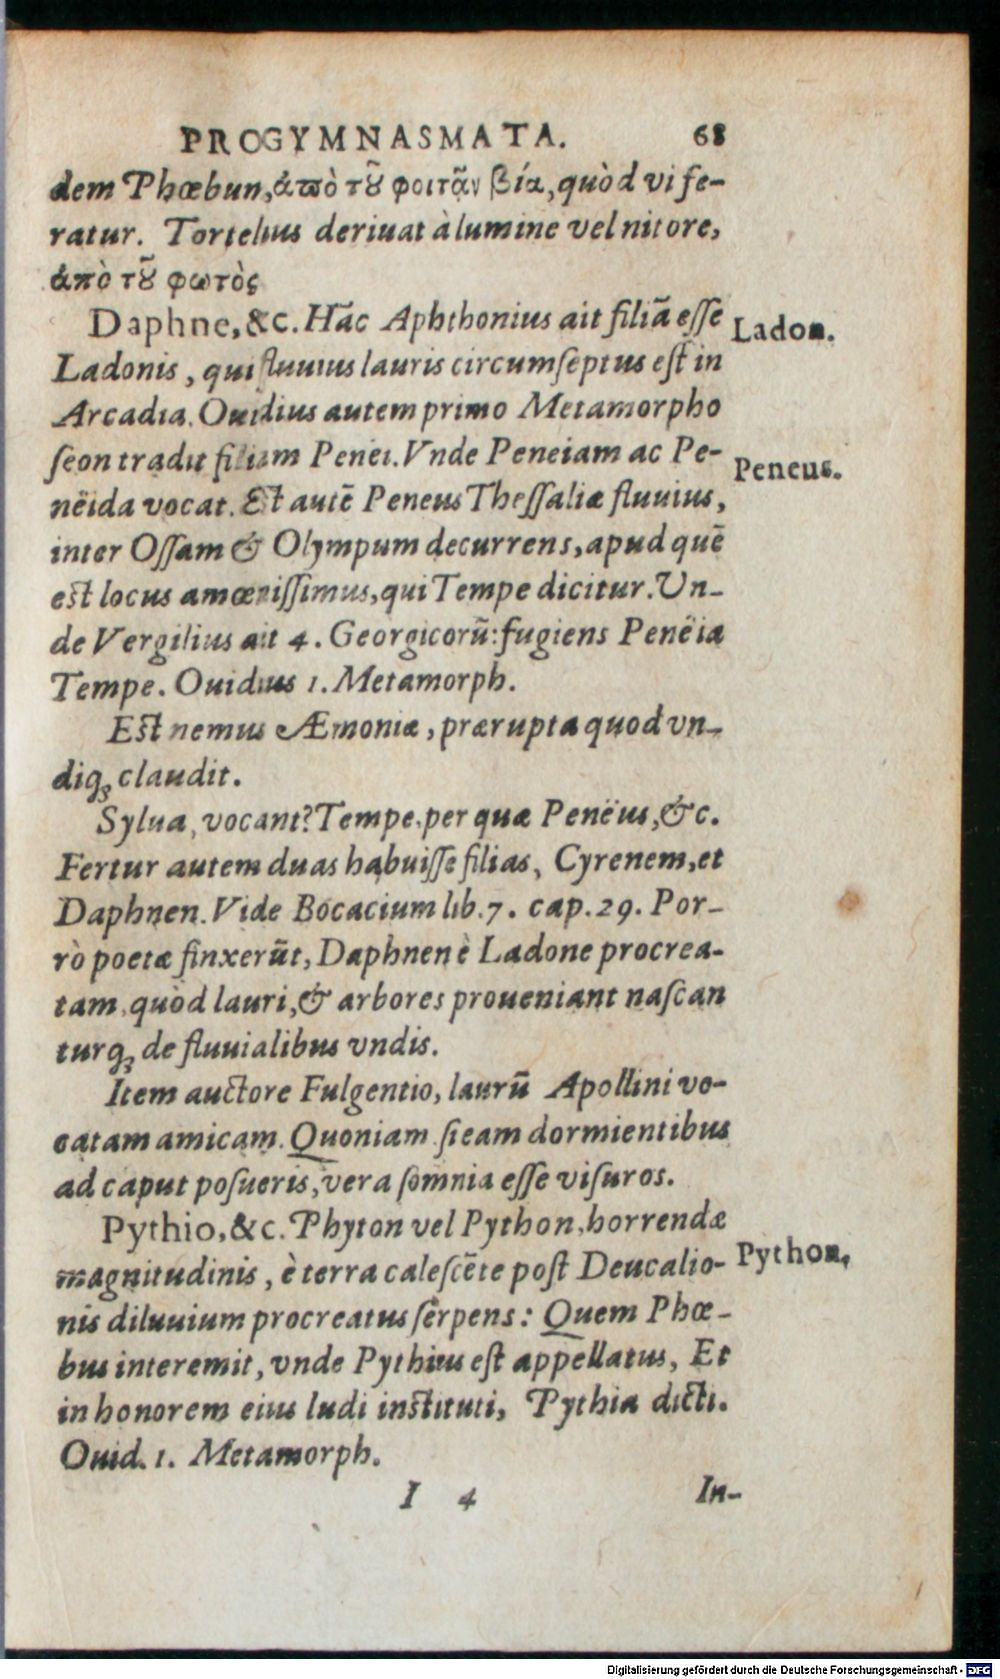 PROGYMNASMATA. 68
dem Phœbun, ἀπὸ τȣ̃ φοιτᾶν βίᾳ, quòd vi fe-
ratur. Tortelius deriuat à lumine vel nitore,
ἀπὸ τȣ̃ φωτὸς
Daphne, &c. Hāc Aphthonius ait filiā eſſe
Ladon.
Ladonis, qui fluuius lauris circumſeptus eſt in
Arcadia. Ouidius autem primo Metamorpho
ſeon tradit filiam Penei. Vnde Peneiam ac Pe-
Peneus.
nëida vocat. Eſt autē Peneus Theſſaliæ fluuius,
inter Oſſam & Olympum decurrens, apud quē
eſt locus amœniſſimus, qui Tempe dicitur. Un-
de Vergilius ait 4. Georgicorū: fugiens Penëia
Tempe. Ouidius 1. Metamorph.
Eſt nemus Æmoniæ, prærupta quod vn-
diqꝫ claudit.
Sylua, vocant? Tempe, per quæ Penëus, &c.
Fertur autem duas habuiſſe filias, Cyrenem, et
Daphnen. Vide Bocacium lib. 7. cap. 29. Por-
rò poetæ finxerūt, Daphnen è Ladone procrea-
tam, quòd lauri, & arbores proueniant naſcan
turqꝫ de fluuialibus vndis.
Item auctore Fulgentio, laurū Apollini vo-
catam amicam. Quoniam ſi eam dormientibus
ad caput poſueris, vera ſomnia eſſe viſuros.
Pythio, &c. Phyton vel Python, horrendæ
magnitudinis, è terra caleſcēte poſt Deucalio-
Python,
nis diluuium procreatus ſerpens: Quem Phœ-
bus interemit, vnde Pythius eſt appellatus, Et
in honorem eius ludi inſtituti, Pythia dicti.
Ouid. 1. Metamorph.
I 4 In-
Digitalisierung gefördert durch die Deutsche Forschungsgemeinschaft - DFG